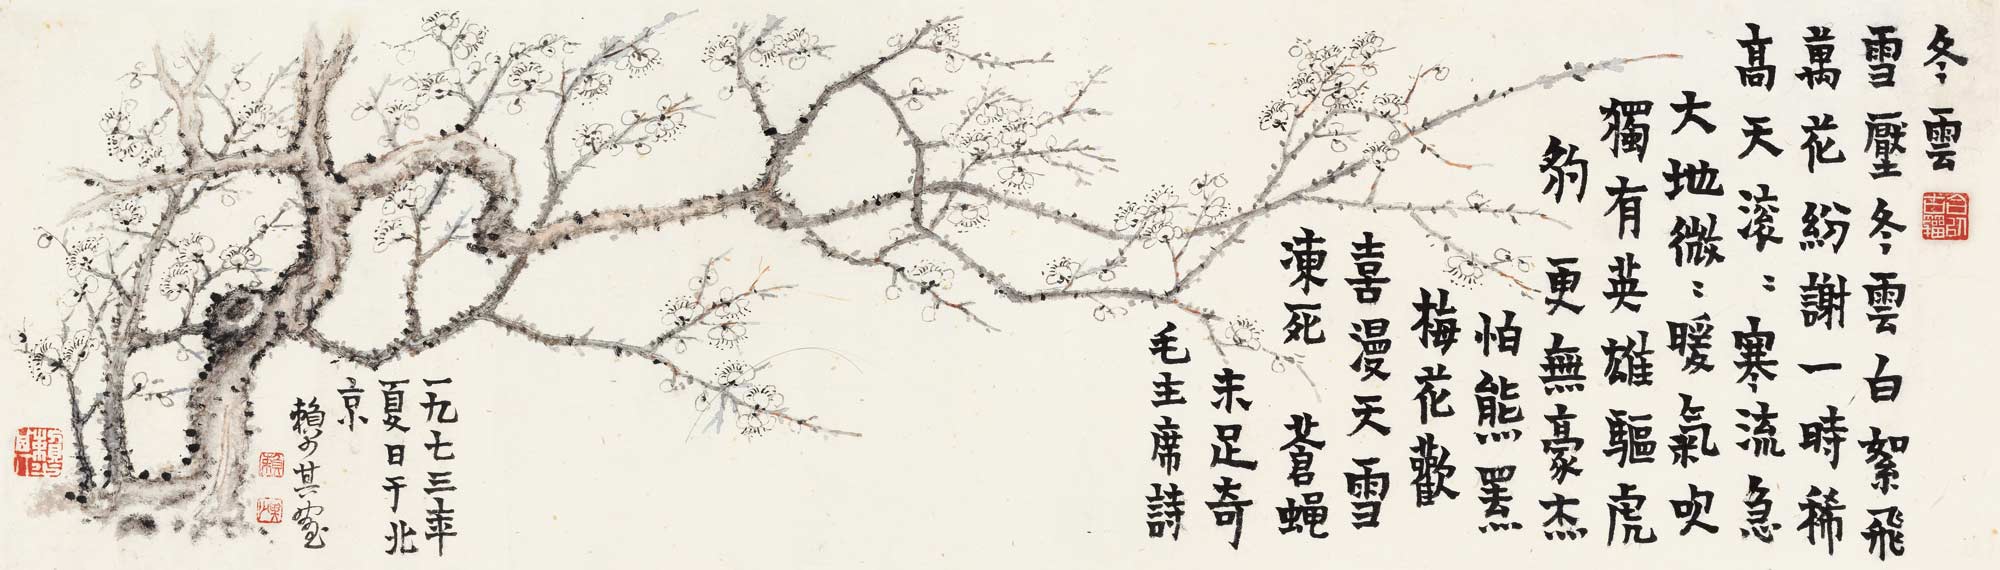 冬雲
雪壓冬雲白絮飛
萬花紛謝一時稀
高天滚〻寒流急
大地微〻暖氣吹
獨有英雄驅虎
豹 更無豪杰
怕熊羆
梅花歡
喜漫天雪
凍死 蒼蝇
未足奇
毛主席詩
一九七三年
夏日于北
京
賴少其畫